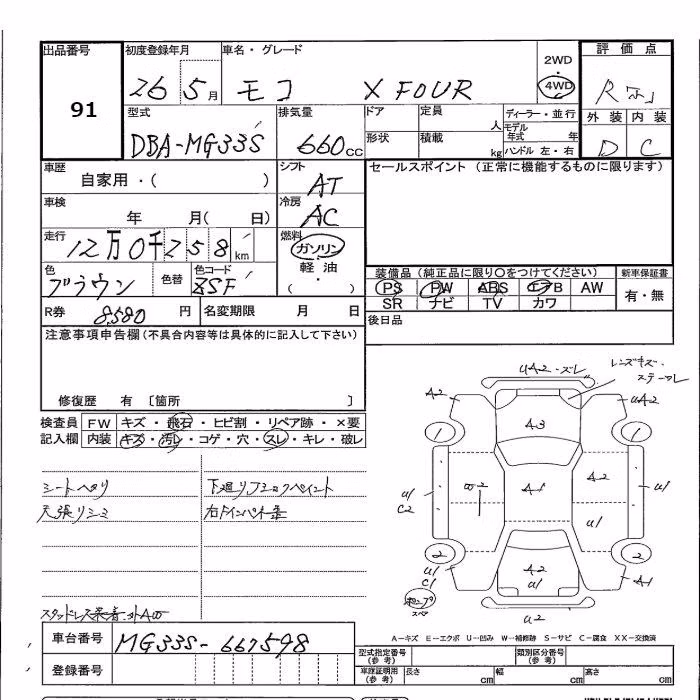 出品番号 初度登録年月 車名・グレード 2WD 4WD 評価点
91 26 5月 モコ X FOUR R
型式 排気量 ドア 定員 人 ディーラー・並行 外装 内装
DBA-MG33S 660cc 形状 積載 kg モデル年式 年 ハンドル 左・右 D C
車歴 シフト セールスポイント(正常に機能するものに限ります)
自家用・( ) AT
車検 冷房
年 月( 日) AC
走行 燃料
12万0千258km ガソリン・軽油・( )
色 色替 色コード 装備品(純正品に限り○をつけてください) 新車保証書
ブラウン ZSF PS PW ABS エアB AW 有・無
SR ナビ TV カワ
R券 8,580円 名変期限 月 日 後日品
注意事項申告欄(不具合内容等は具体的に記入して下さい)
修復歴 有 〔箇所 〕
検査員 FW キズ・飛石・ヒビ割・リペア跡・×要
記入欄 内装 キズ・汚レ・コゲ・穴・スレ・キレ・破レ
シートヘタリ 下廻りブラックペイント
天張りシミ
UA2・ズレ
レンズキズ・
A2 UA2
1 A3 1
U1 C2 A1 A2 U1
U1
2 2
U1 C1 A2 U1 A1
U2
A-キズ E-エクボ U-凹み W-補修跡 S-サビ C-腐食 XX-交換済
車台番号 MG33S-667598
型式指定番号(参考) 類別区分番号(参考)
登録番号 車庫証明用(参考) 長さ cm 幅 cm 高さ cm